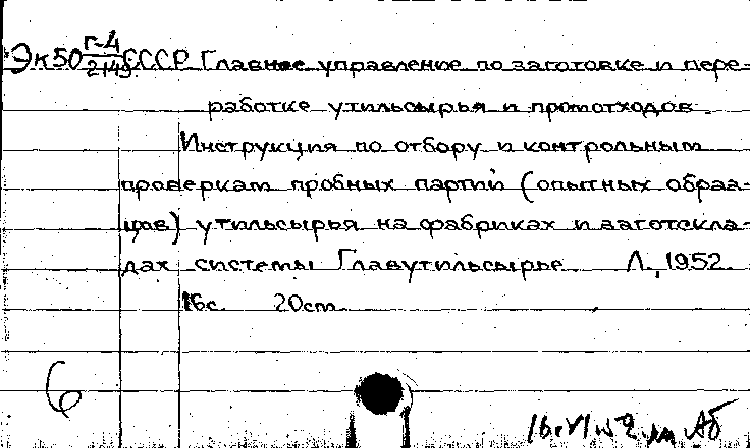 Эк50 Г-4/2149 СССР Главное управление по заготовке и пере-
работке утильсырья и промотходов.
Инструкция по отбору и контрольным
проверкам пробных партий (опытных образ-
цов) утильсырья на фабриках и заготскла-
дах системы Главутильсырье. Л., 1952.
16с. 20cm.
6